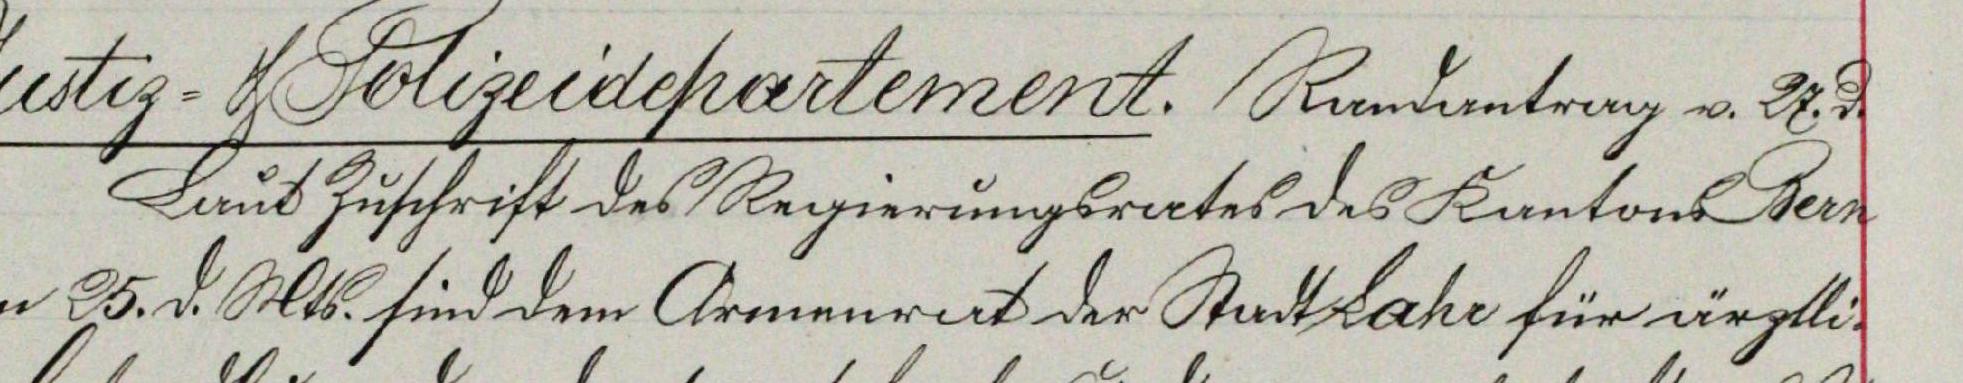 Justiz- & Polizeidepartement. Randantrag v. 27. d.
Laut Zuschrift des Regierungsrates des Kantons Bern
25. d. Mts. sind dem Armenrat der Stadt Lahr für ärztli-